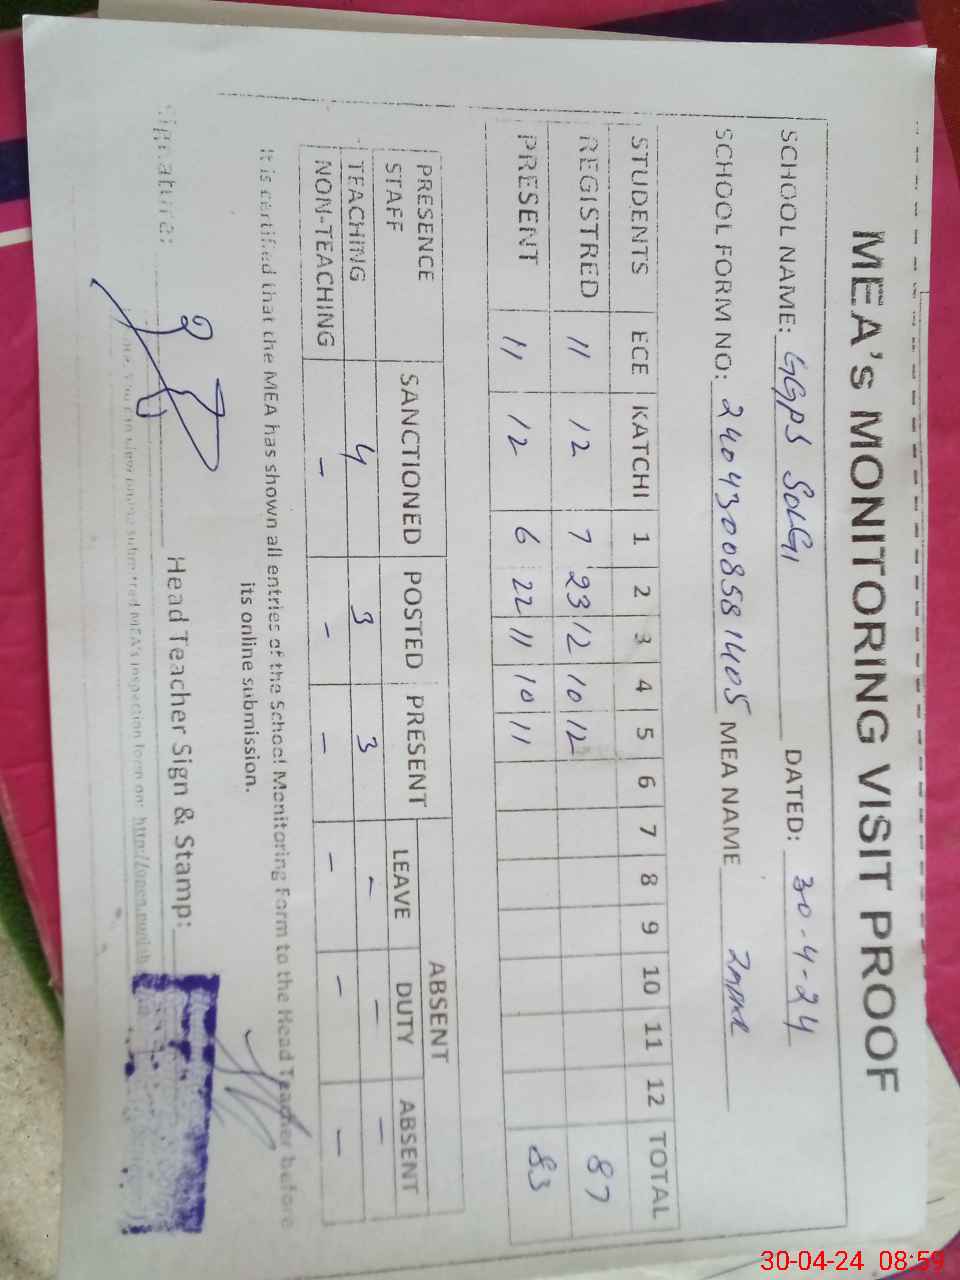 MEA's MONITORING VISIT PROOF
SCHOOL NAME: GGPS SOLGI DATED: 30-4-24
SCHOOL FORM NO: 24043008581405 MEA NAME
STUDENTS ECE KATCHI 1 2 3 4 5 6 7 8 9 10 11 12 TOTAL
REGISTRED 11 12 7 23 12 10 12 87
PRESENT 11 12 6 22 11 10 11 83
PRESENCE STAFF SANCTIONED POSTED PRESENT ABSENT
LEAVE DUTY ABSENT
TEACHING 4 3 3 - - -
NON-TEACHING - - - - - -
It is certified that the MEA has shown all entries of the School Monitoring Form to the Head Teacher before
its online submission.
Signature: Head Teacher Sign & Stamp:
submitted MEA's inspection form on: http://open.punjab
30-04-24 08:59